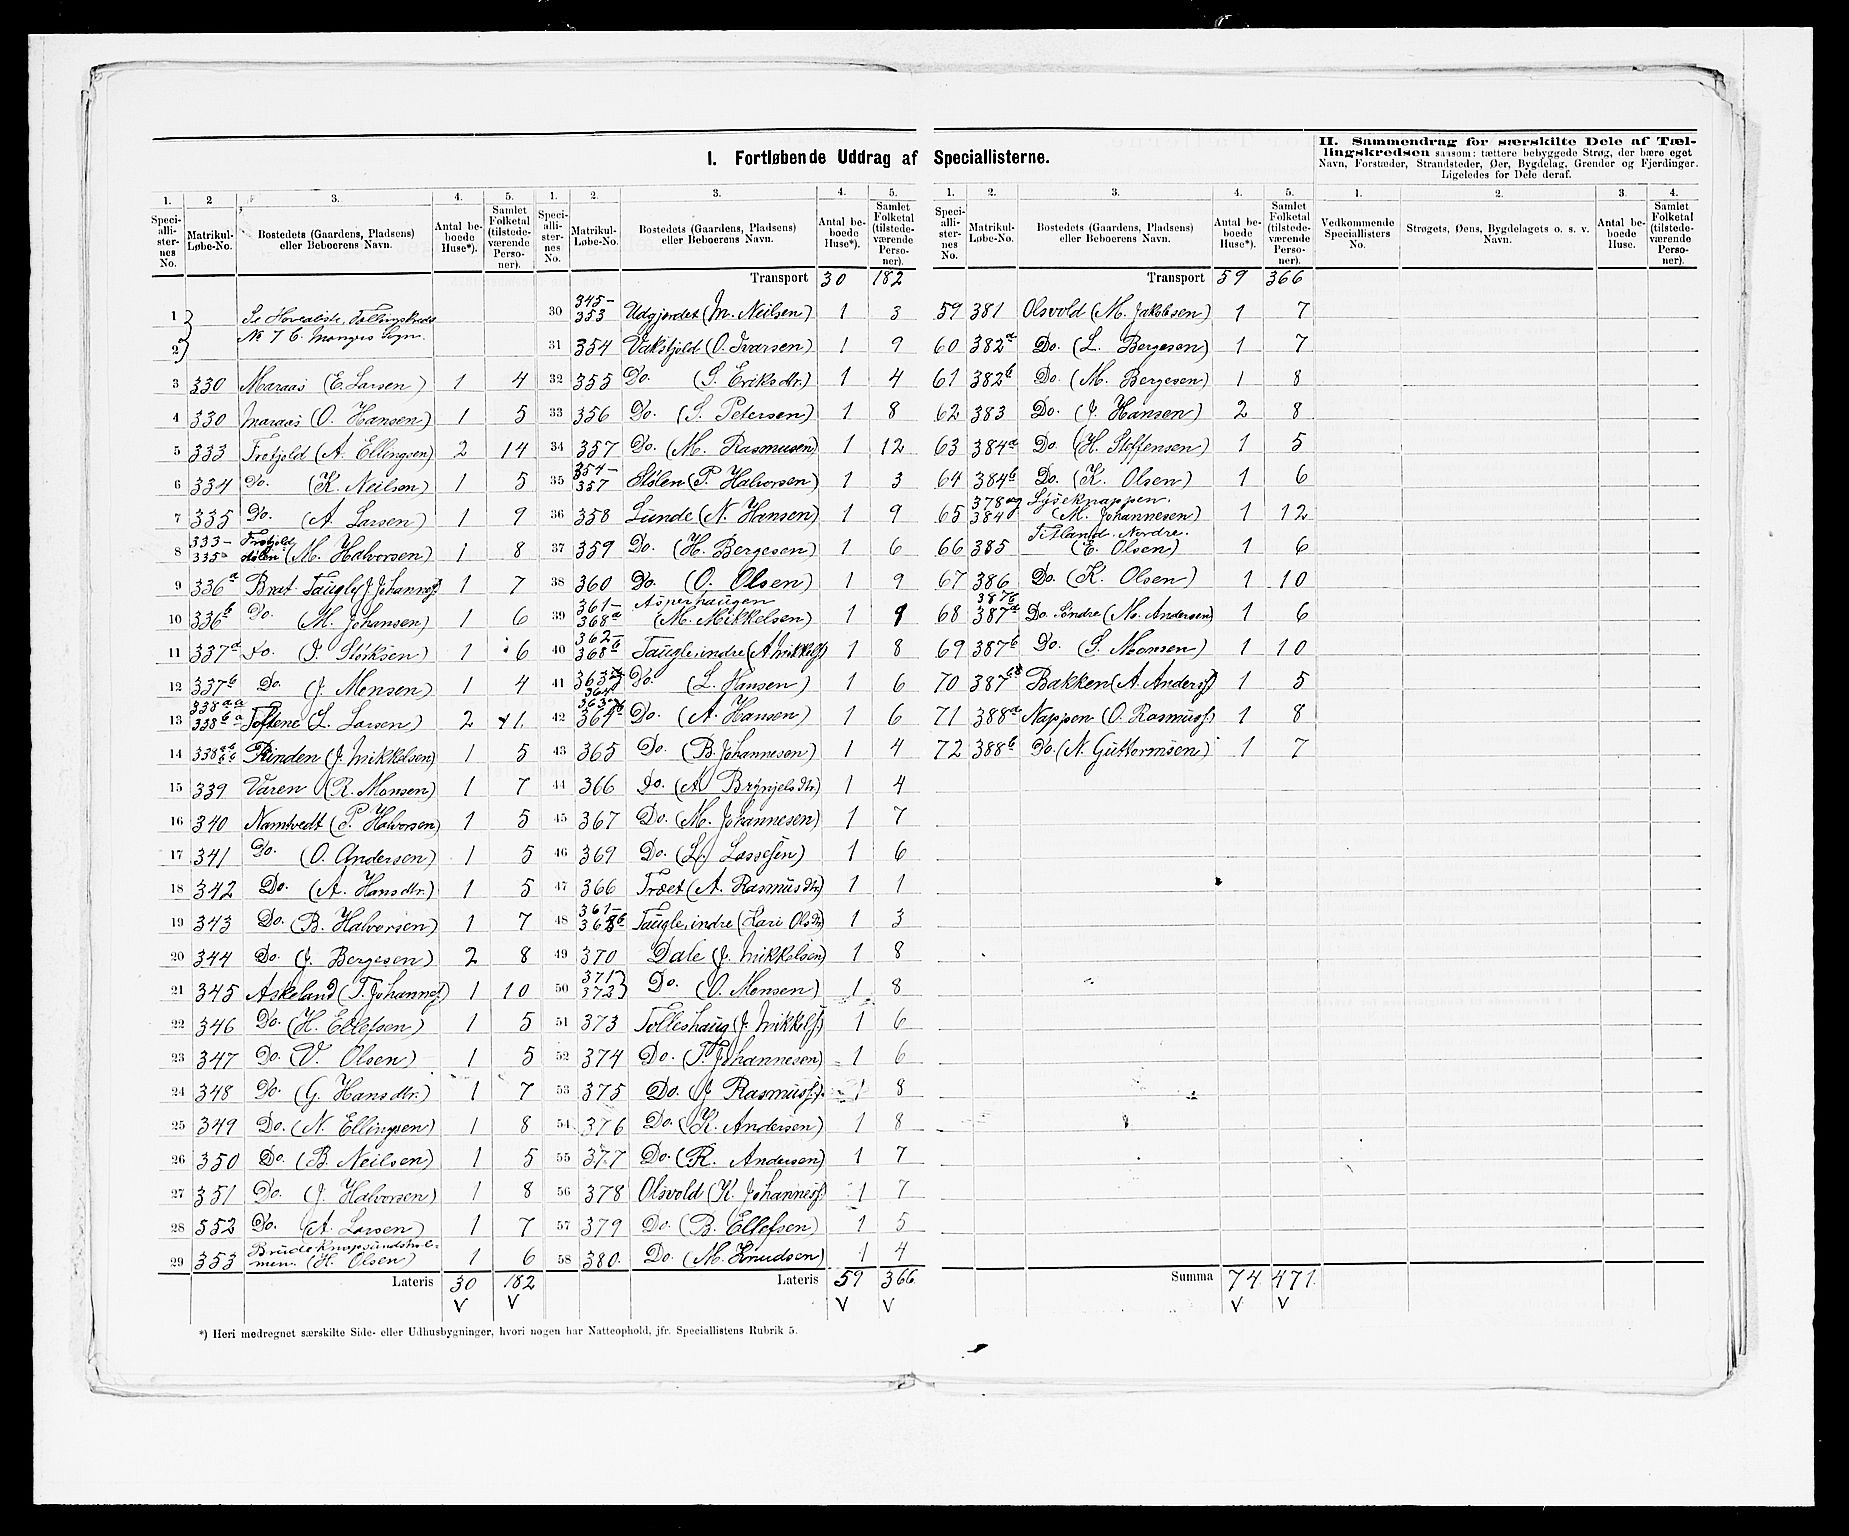 I. Fortløbende Uddrag af Speciallisterne.
II. Sammendrag for særskilte Dele af Tællingskredsen saasom: tættere bebyggede Strøg, der bære eget
Navn, Forstæder, Strandsteder, Øer, Bygdelag, Grender og Fjerdinger.
Ligeledes for Dele deraf.
1. 2 3. 4. 5.
Speciallisternes No. Matrikul-Løbe-No. Bostedets (Gaardens, Pladsens) eller Beboerens Navn. Antal beboede Huse*). Samlet Folketal (tilstedeværende Personer).
1 Se Hovedliste, Tællingskreds
2 No 7 6. Mangers Sogn.
3 330 Maraas (E. Larsen) 1 4
4 330 Maraas (O. Hansen) 1 5
5 333 Frotjold (A. Ellingsen) 2 14
6 334 Do. (K. Neilsen) 1 5
7 335 Do. (A. Larsen) 1 9
8 333-335a Frotjolddalen (M. Halvorsen) 1 8
9 336a Brat Taugle (J. Johannesf) 1 7
10 336b Do. (M. Johansen) 1 6
11 337a Do. (I. Störksen) 1 6
12 337b Do. (J. Monsen) 1 4
13 338aa 338ba Toftene (L. Larsen) 2 11.
14 338ab bb Rinden (J. Mikkelsen) 1 5
15 339 Varen (R. Monsen) 1 7
16 340 Namtvedt (P. Halvorsen) 1 5
17 341 Do. (O. Andersen) 1 5
18 342 Do. (A. Hansdtr.) 1 5
19 343 Do. (B. Halvorsen) 1 7
20 344 Do. (J. Bergesen) 2 8
21 345 Askeland (T. Johannesf.) 1 10
22 346 Do. (H. Ellefsen) 1 5
23 347 Do. (V. Olsen) 1 5
24 348 Do. (G. Hansdtr.) 1 7
25 349 Do. (N. Ellingsen) 1 8
26 350 Do. (B. Neilsen) 1 5
27 351 Do. (J. Halvorsen) 1 8
28 352 Do. (A. Larsen) 1 7
29 353 Brudeknapsundsholmen. (H. Olsen) 1 6
Lateris 30 182
V V
1. 2. 3. 4. 5.
Speciallisternes No. Matrikul-Løbe-No. Bostedets (Gaardens, Pladsens) eller Beboerens Navn. Antal beboede Huse*). Samlet Folketal (tilstedeværende Personer).
Transport 30 182
30 345-353 Udgjerdet (M. Neilsen) 1 3
31 354 Vakstjold (O. Ivarsen) 1 9
32 355 Do. (S. Eriksdtr.) 1 4
33 356 Do. (S. Petersen) 1 8
34 357 Do. (M. Rasmusen) 1 12
35 354-357 Stölen (P. Halvorsen) 1 3
36 358 Lunde (N. Hansen) 1 9
37 359 Do. (H. Bergesen) 1 6
38 360 Do. (O. Olsen) 1 9
39 361-368a Asperhaugen (M. Mikkelsen) 1 9
40 362-368b Taugle, indre (A Mikkelsf) 1 8
41 363 364 Do. (L. Hansen) 1 6
42 363 364 Do. (A. Hansen) 1 6
43 365 Do. (B. Johannesen) 1 4
44 366 Do. (A Brynjelsdtr.) 1 4
45 367 Do. (M. Johannesen) 1 7
46 369 Do. (L. Lassesen) 1 6
47 366 Træet (A. Rasmusdtr) 1 1
48 361-368b Taugle, indre (Kari Olsdtr) 1 3
49 370 Dale (J. Mikkelsen) 1 8
50 371 372 Do. (O. Monsen) 1 8
51 373 Tolleshaug (J. Mikkelsf) 1 6
52 374 Do. (T. Johannesen) 1 6
53 375 Do. (J Rasmusf.) 1 8
54 376 Do. (K. Andersen) 1 8
55 377 Do. (R. Andersen) 1 7
56 378 Olsvold (K. Johannesf) 1 7
57 379 Do. (B. Ellefsen) 1 5
58 380. Do. (M. Knudsen) 1 4
Lateris 59 366
V V
1. 2. 3. 4. 5.
Speciallisternes No. Matrikul-Løbe-No. Bostedets (Gaardens, Pladsens) eller Beboerens Navn. Antal beboede Huse*). Samlet Folketal (tilstedeværende Personer).
Transport 59 366
59 381 Olsvold (M. Jakobsen) 1 7
60 382a Do. (L. Bergesen) 1 7
61 382b Do. (M. Bergesen) 1 8
62 383 Do. (J. Hansen) 2 8
63 384a Do. (H. Steffensen) 1 5
64 384b Do. (K. Olsen) 1 6
65 378 og 384 Lyseknappen. (M. Johannesen) 1 12
66 385 Titland. Nordre. (E. Olsen) 1 6
67 386 Do. (K. Olsen) 1 10
68 387a Do. Söndre (M. Andersen) 1 6
69 387b Do. (S. Monsen) 1 10
70 387 Bakken (A. Andersf) 1 5
71 388a Nappen (O. Rasmusf.) 1 8
72 388b Do. (N. Guttormsen) 1 7
Summa 74. 471.
V V
1. 2. 3. 4.
Vedkommende Speciallisters No. Strøgets, Øens, Bygdelagets o. s. v. Navn. Antal beboede Huse. Samlet Folketal (tilstedeværende Personer).
*) Heri medregnet særskilte Side- eller Udhusbygninger, hvori nogen har Natteophold, jfr. Speciallistens Rubrik 5.